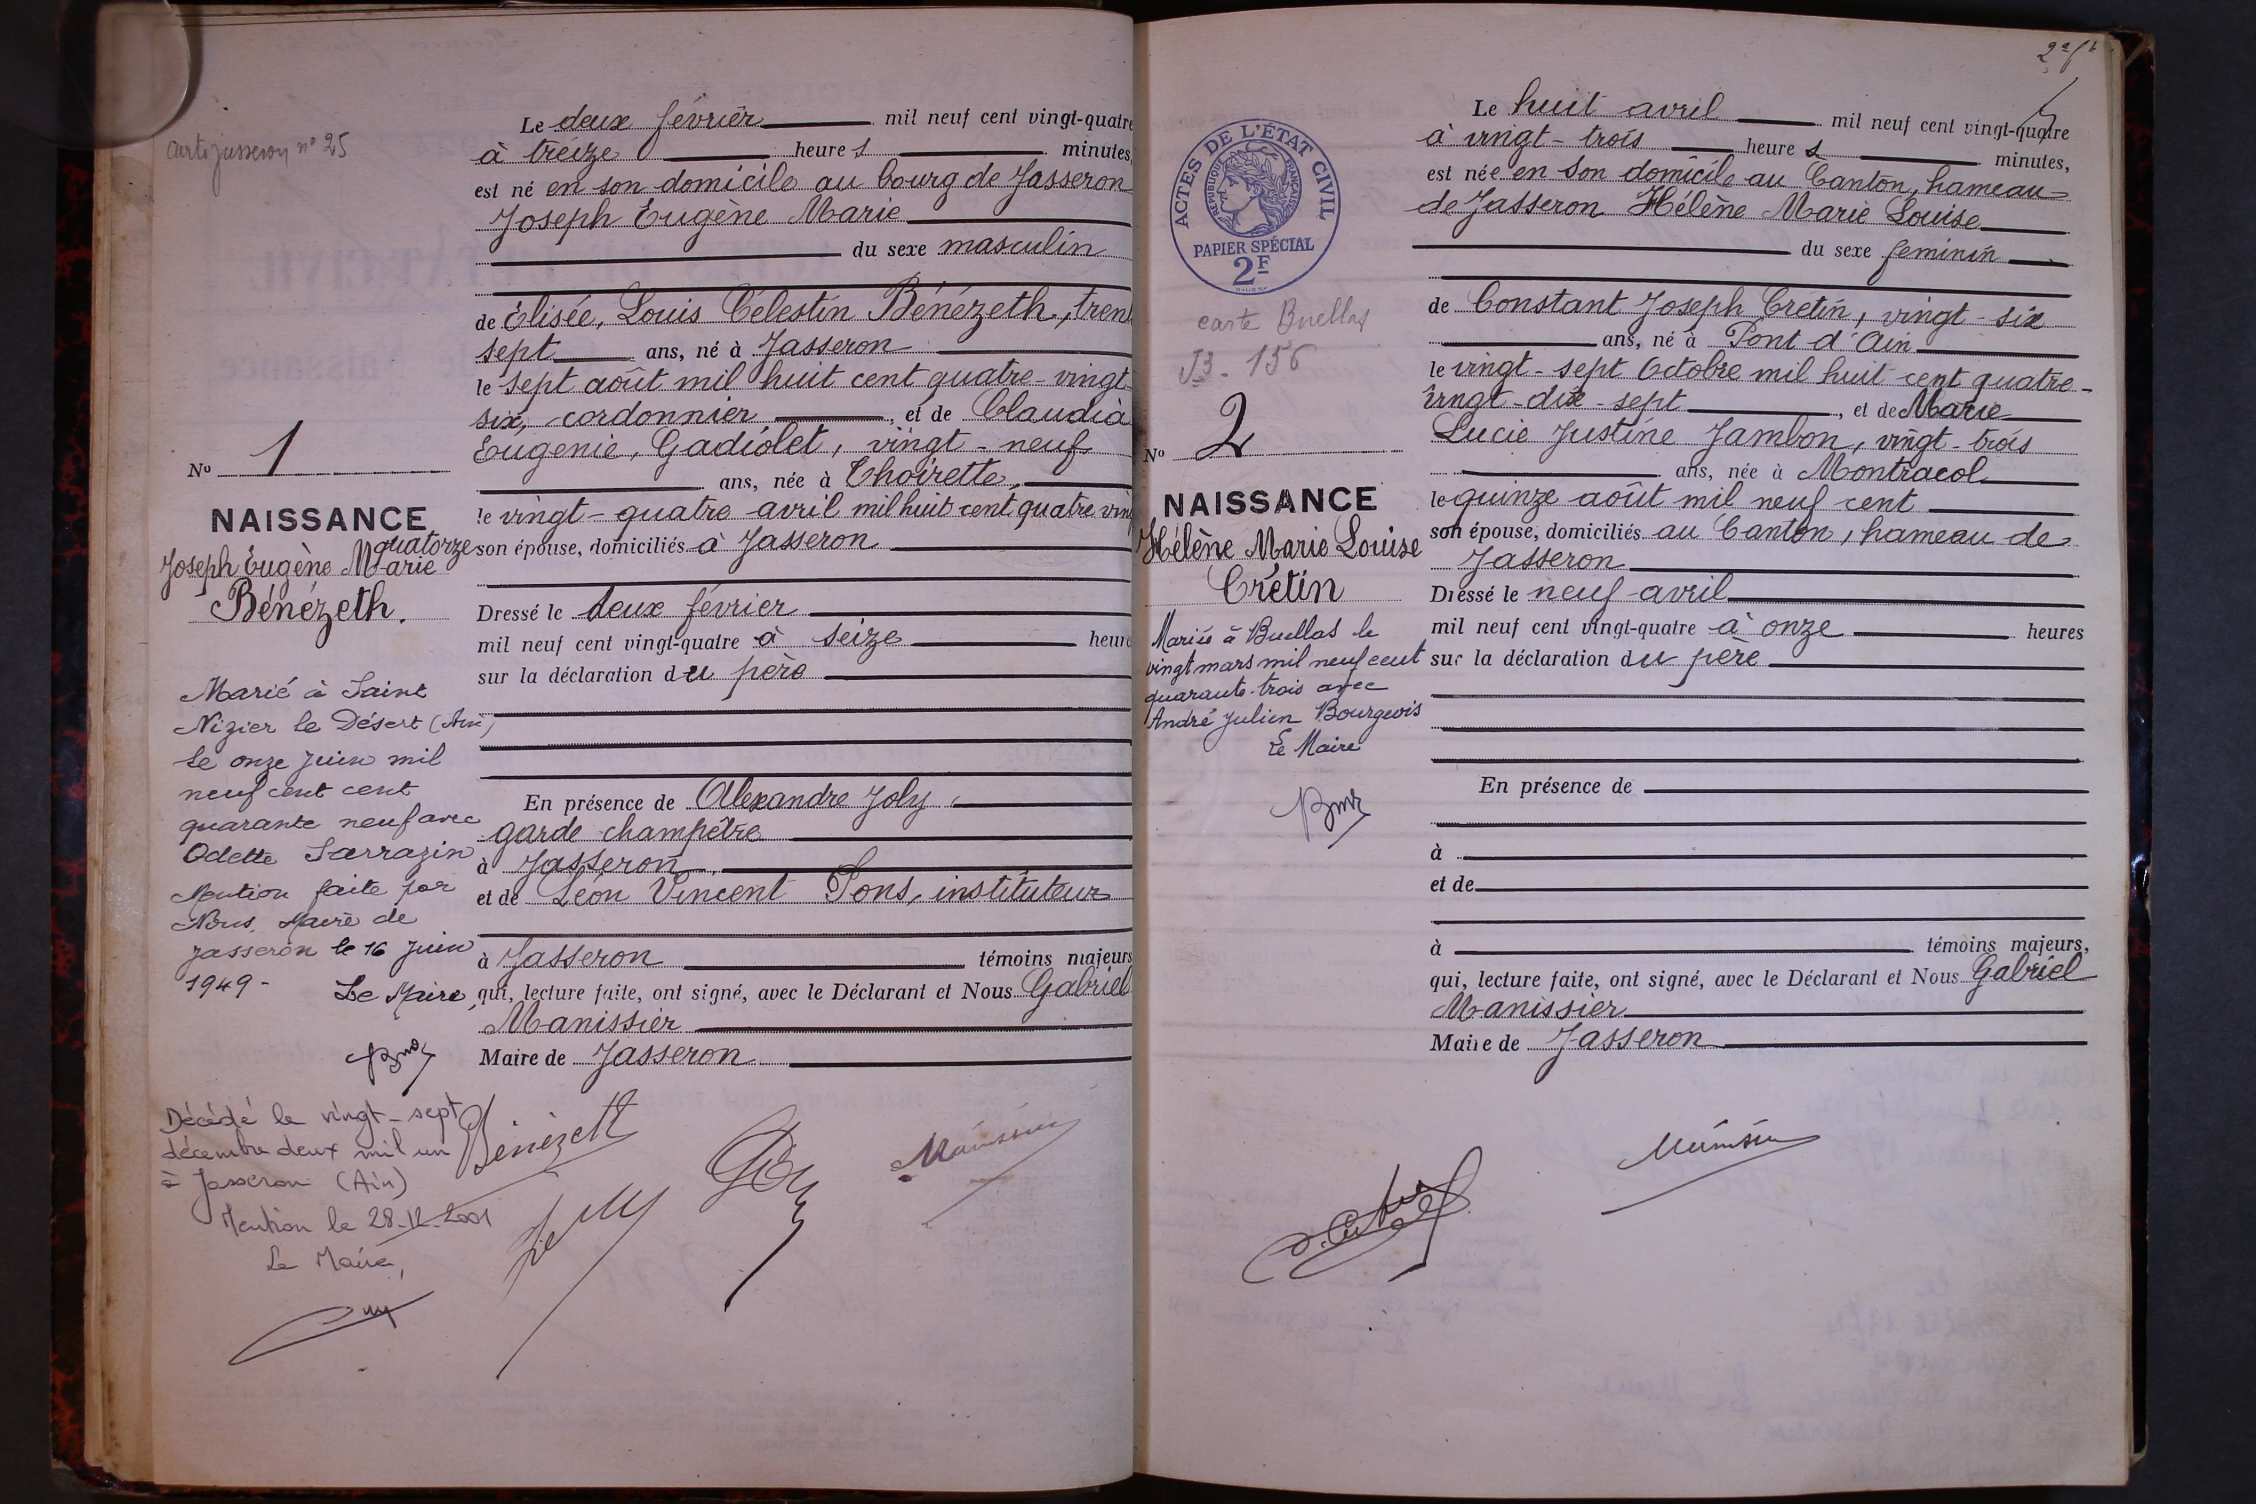 carte Jasseron n° 25
Le deux février mil neuf cent vingt-quatre
à treize heures minutes,
est né en son domicile au bourg de Jasseron
Joseph Eugène Marie
du sexe masculin
de Elisée, Louis Célestin Bénézeth, trente
sept ans, né à Jasseron
le sept août mil huit cent quatre-vingt-
six, cordonnier, et de Claudia
Eugenie, Gadiolet, vingt-neuf
ans, née à Thoirette,
le vingt-quatre avril mil huit cent quatre vingt
quatorze son épouse, domiciliés à Jasseron
Dressé le deux février
mil neuf cent vingt-quatre à seize heures
sur la déclaration du père
En présence de Alexandre Joly,
garde champêtre
à Jasseron,
et de Léon Vincent Pons, instituteur
à Jasseron témoins majeurs
qui, lecture faite, ont signé, avec le Déclarant et Nous Gabriel
Manissier
Maire de Jasseron
Bénézeth
Manissier
No 1
NAISSANCE
Joseph Eugène Marie
Bénézeth.
Marié à Saint
Nizier le Désert (Ain)
le onze Juin mil
neuf cent cent
quarante neuf avec
Odette Sarrazin
Mention faite par
Nous, Maire de
Jasseron le 16 Juin
1949 -
Le Maire,
Décédé le vingt-sept
décembre deux mil un
à Jasseron (Ain)
Mention le 28-12-2001
Le Maire,
ACTES DE L'ÉTAT CIVIL
RÉPUBLIQUE FRANÇAISE
PAPIER SPÉCIAL
2F
carte Buellas
J3-156
No 2
NAISSANCE
Hélène Marie Louise
Crétin
Mariée à Buellas le
vingt mars mil neuf cent
quarante-trois avec
André Julien Bourgeois
Le Maire
Le huit avril mil neuf cent vingt-quatre
à vingt-trois heures minutes,
est née en son domicile au Canton, hameau
de Jasseron Hélène Marie Louise
du sexe feminin
de Constant Joseph Cretin, vingt-six
ans, né à Pont d'Ain
le vingt-sept Octobre mil huit cent quatre-
vingt-dix-sept, et de Marie
Lucie Justine Jambon, vingt-trois
ans, née à Montracol
le quinze août mil neuf cent
son épouse, domiciliés au Canton, hameau de
Jasseron
Dressé le neuf avril
mil neuf cent vingt-quatre à onze heures
sur la déclaration du père
En présence de
à
et de
à témoins majeurs,
qui, lecture faite, ont signé, avec le Déclarant et Nous Gabriel
Manissier
Maire de Jasseron
Manissier